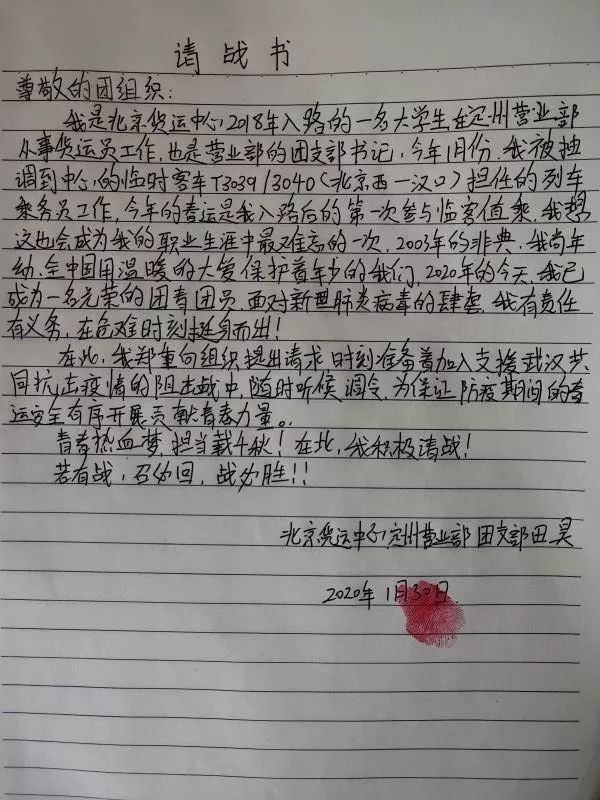 请战书
尊敬的团组织：
我是北京货运中心2018年入路的一名大学生在定州营业部
从事货运员工作，也是营业部的团支部书记，今年1月份，我被抽
调到中心的临时客车T3039/3040（北京西一汉口）担任的列车
乘务员工作，今年的春运是我入路后的第一次参与临客值乘，我想
这也会成为我的职业生涯中最难忘的一次，2003年的非典，我尚年
幼，全中国用温暖的大爱保护着年少的我们，2020年的今天，我已
成为一名光荣的团青团员，面对新型肺炎病毒的肆虐，我有责任
有义务，在危难时刻挺身而出！
在此，我郑重向组织提出请求时刻准备着加入支援武汉共
同抗击疫情的阻击战中，随时听候调令，为保证防疫期间的春
运安全有序开展贡献青春力量。
青春热血梦，担当载千秋！在此，我积极请战！
若有战，召必回，战必胜！！
北京货运中心定州营业部团支部田昊
2020年1月30日